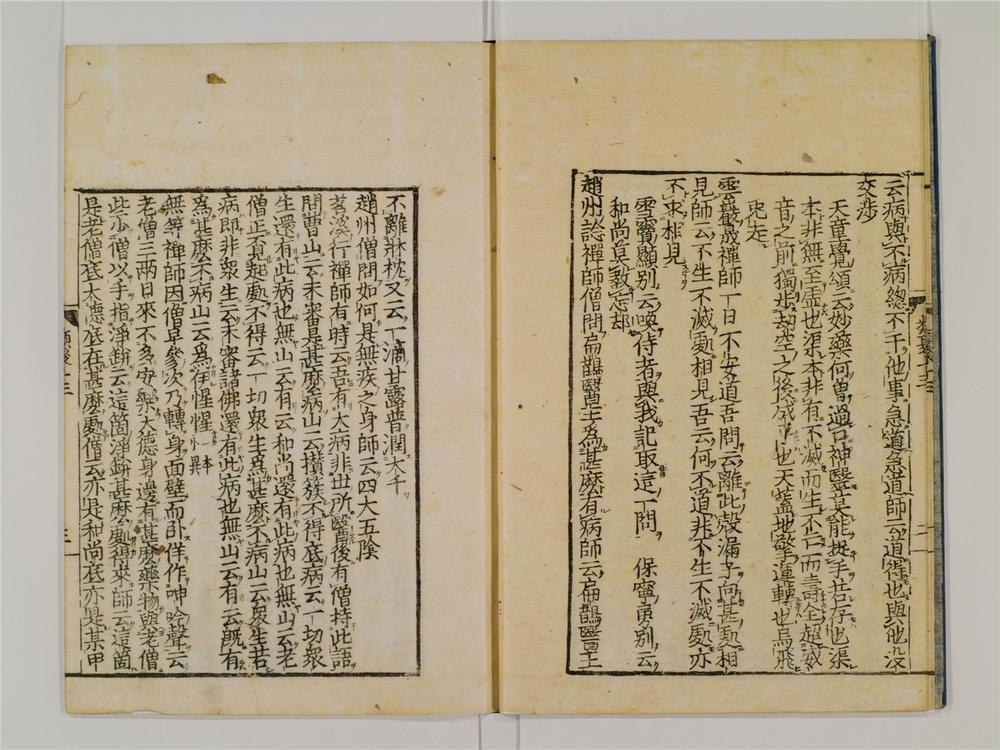 云病與不病總不干他事急道急道師云道得也與他沒
交涉
天童覺頌云妙藥何曾過口神醫莫能捉手若存也渠
本非無至虛也渠本非有不滅而生不亡而壽全超威
音之前獨步劫空之後成平也天蓋地擎運轉也烏飛
兎走
雲巖晟禪師一日不安道吾問云離此殼漏子向甚麼處相
見師云不生不滅處相見吾云何不道非不生不滅處亦
不求相見
雪竇顯別云喚侍者與我記取這一問 保寧勇別云
和尚莫教忘却
趙州諗禪師僧問扁鵲醫王為甚麼有病師云扁鵲醫王
不離牀枕又云一滴甘露普潤大千
趙州僧問如何是無疾之身師云四大五陰
茗溪行禪師有時云吾有大病非世所醫後有僧持此語
問曹山云未審是甚麼病山云攢簇不得底病云一切衆
生還有此病也無山云有云和尚還有此病也無山云老
僧正覓起處不得云一切衆生為甚麼不病山云衆生若
病即非衆生云未審諸佛還有此病也無山云有云既有
為甚麼不病山云為伊惺惺
無等禪師因僧早參次乃轉身面壁而臥佯作呻吟聲云
老僧三兩日來不多安樂大德身邊有甚麼藥物與老僧
些少僧以手指淨缾云這箇淨缾甚麼處得來師云這箇
是老僧底大德底在甚麼處僧云亦是和尚底亦是某甲